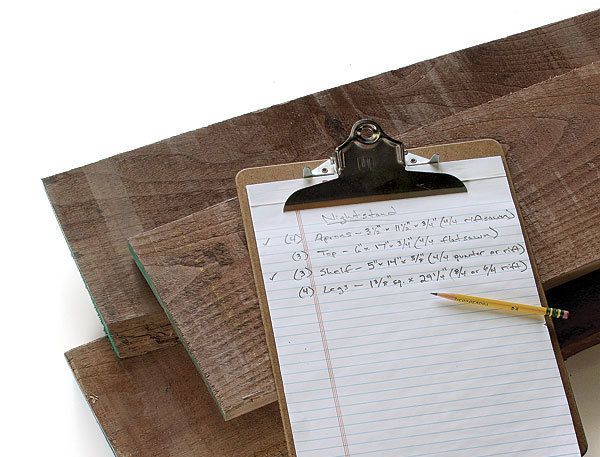 Nightstand
✓ (4) Aprons – 3½" x 11½" x ¾" (4/4 riftsawn)
(3) Top – 6" x 17" x ¾" (4/4 flatsawn)
✓ (3) Shelf – 5" x 14" x 5/8" (4/4 quarter or rift)
(4) Legs – 1⅜" sq. x 29¼" (8/4 or 6/4 rift)